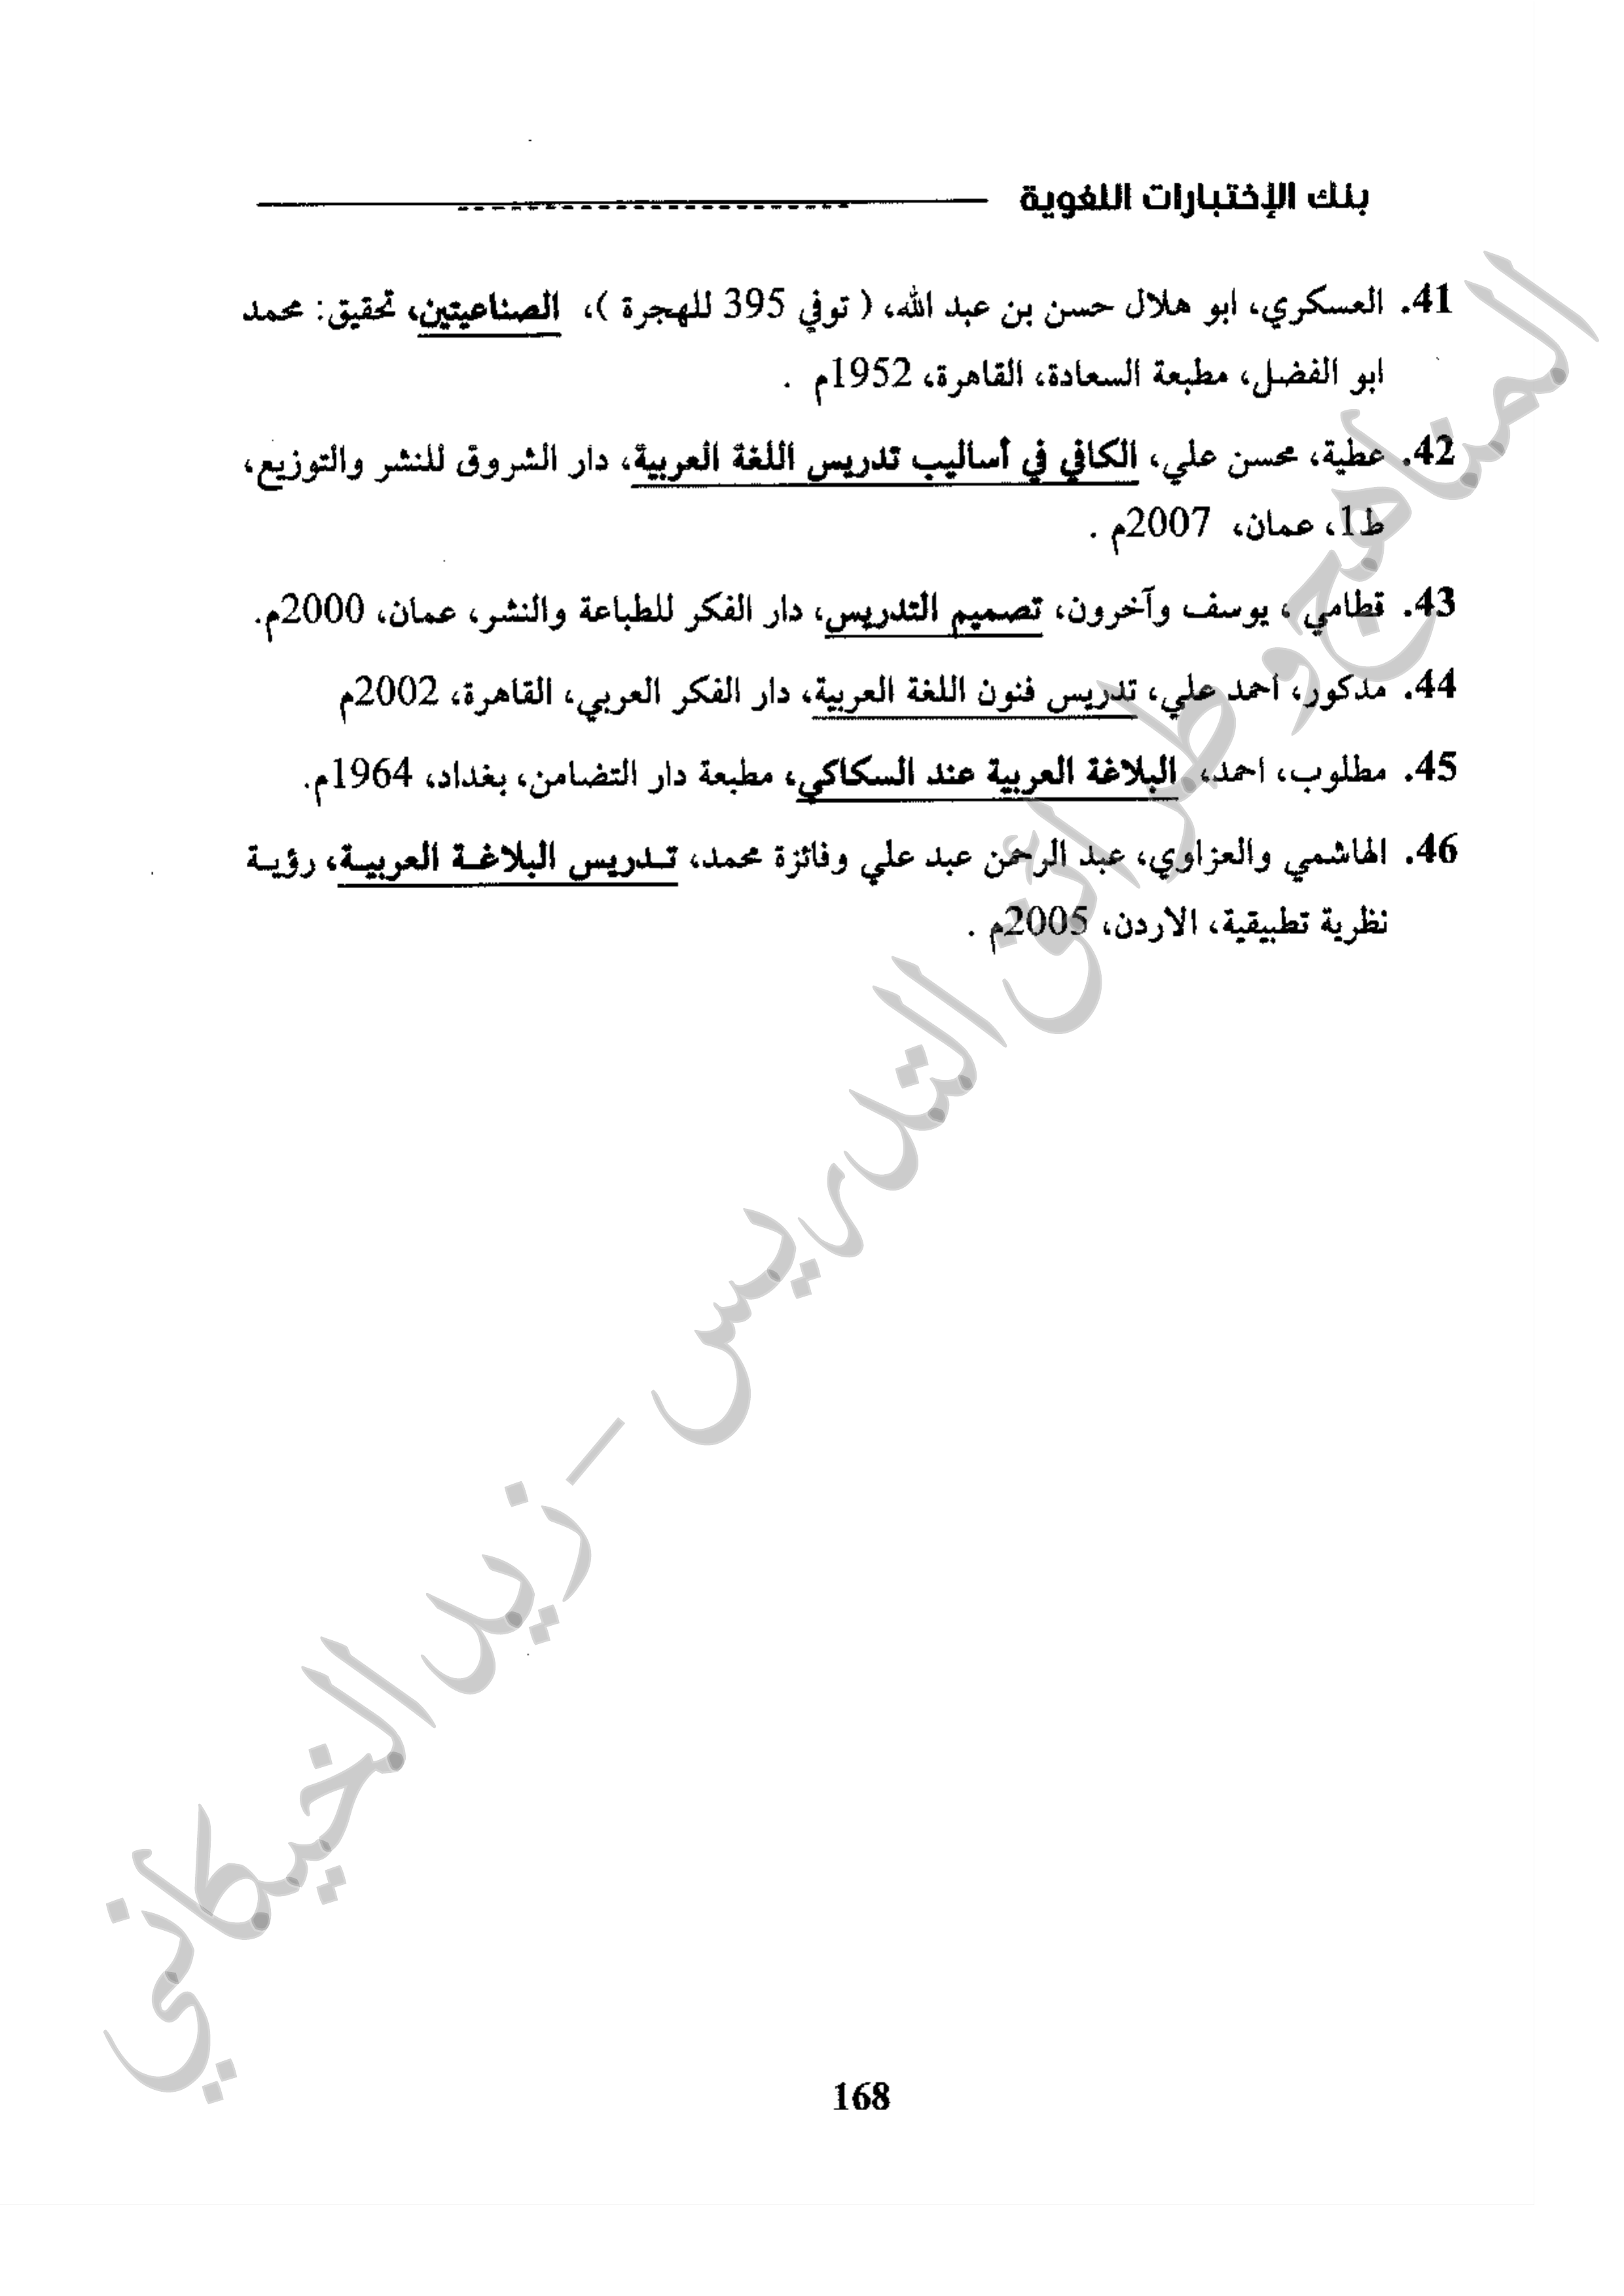 بنك الإختبارات اللغوية
41. العسكري، ابو هلال حسن بن عبد الله، ( توفي 395 للهجرة )، الصناعيتين، تحقيق: محمد
ابو الفضل، مطبعة السعادة، القاهرة، 1952م .
42. عطية، محسن علي، الكافي في أساليب تدريس اللغة العربية، دار الشروق للنشر والتوزيع،
ط1، عمان، 2007م .
43. قطامي ، يوسف وآخرون، تصميم التدريس، دار الفكر للطباعة والنشر، عمان، 2000م.
44. مذكور، احمد علي، تدريس فنون اللغة العربية، دار الفكر العربي، القاهرة، 2002م
45. مطلوب، احمد، البلاغة العربية عند السكاكي، مطبعة دار التضامن، بغداد، 1964م.
46. الهاشمي والعزاوي، عبد الرحمن عبد علي وفائزة محمد، تـدريس البلاغـة العربيـة، رؤيـة
نظرية تطبيقية، الاردن، 2005م .
المناهج وطرائق التدريس - زيد الخيكاني
168